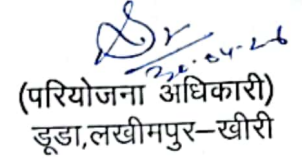 (परियोजना अधिकारी)
डूडा,लखीमपुर–खीरी